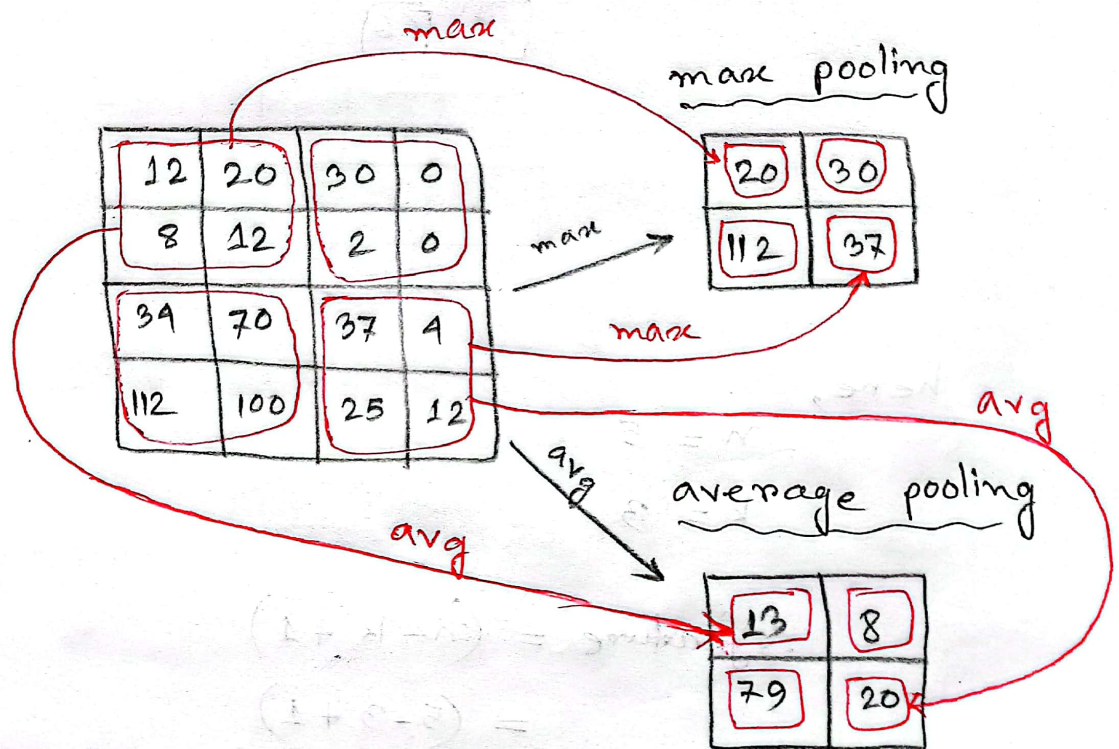 max
max pooling
12 20 30 0
8 12 2 0
34 70 37 4
112 100 25 12
max
20 30
112 37
max
avg
avg
average pooling
avg
13 8
79 20